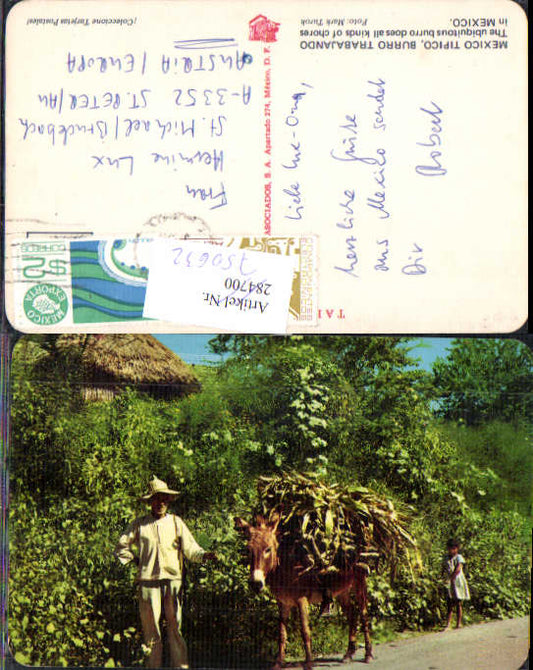 MEXICO TIPICO, BURRO TRABAJANDO
The ubiquitous burro does all kinds of chores
in MEXICO.
Foto: Mark Turok
¡Coleccione Tarjetas Postales!
ASOCIADOS, S. A. Apartado 274, México, D. F.
Liebe Lux-Oma,
herzliche Grüße
aus Mexico sendet
Dir
Robert
Frau
Hermine Lux
St. Michael/Bruckbach
A-3352 ST. PETER/AU
AUSTRIA/EUROPA
MEXICO
EXPORTA
CORREOS
Artikel-Nr.
284700
750632
TAI